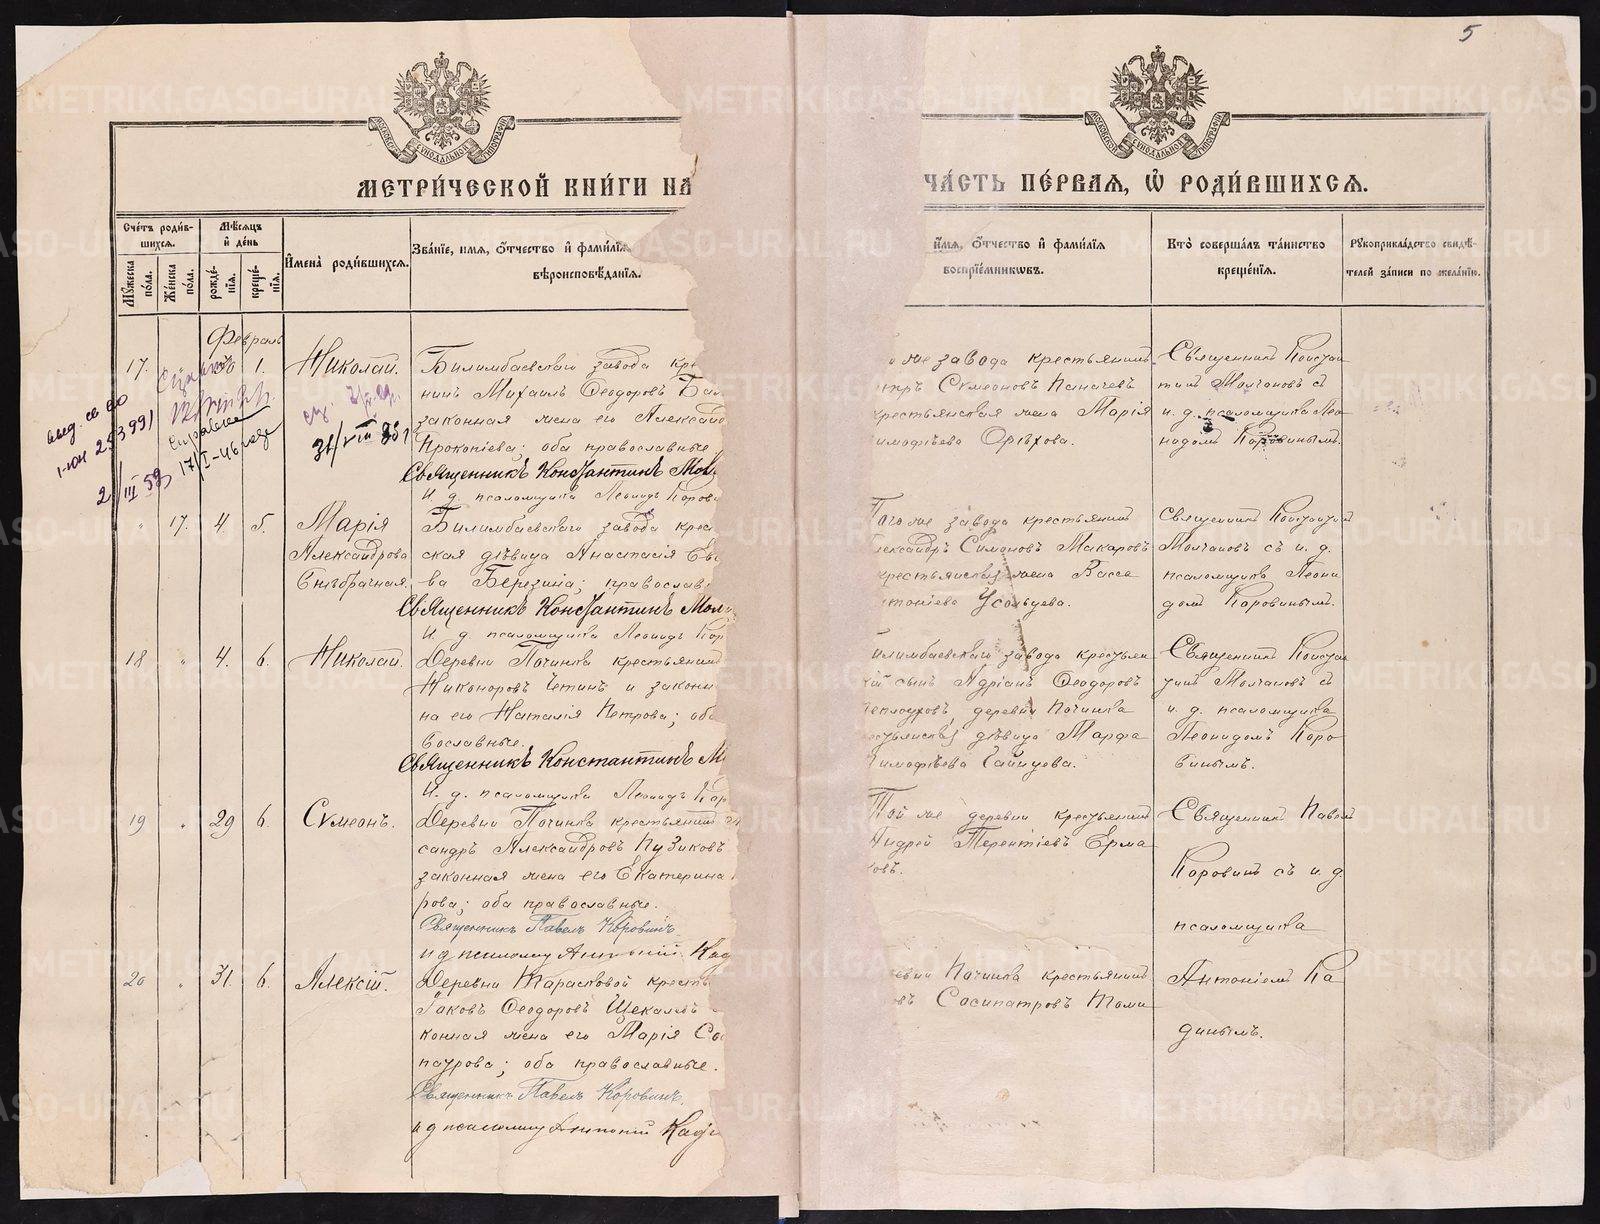 5
МОСКОВСКОЙ СѴНОДАЛЬНОЙ ТИПОГРАФІИ
МОСКОВСКОЙ СѴНОДАЛЬНОЙ ТИПОГРАФІИ
МЕТРИ́ЧЕСКОЙ КНИ́ГИ НА
ЧА́СТЬ ПЕ́РВАЯ, Ѽ РОДИ́ВШИХСЯ.
Сче́тъ роди́в-
шихся.
Мѣ́сяцъ
и҆ де́нь
Мꙋ́жеска по́ла.
Же́нска по́ла.
рожде́-
нїя.
креще́-
нїя.
И҆мена̀ роди́вшихся.
Зва́нїе, и҆мя, ѻ҆́тчество и҆ фами́лїя
вѣроисповѣ́данїя.
и҆́мя, ѻ҆́тчество и҆ фами́лїя
воспрїе́мникѡвъ.
Кто̀ соверша́лъ та́инство
креще́нїя.
Рꙋкоприкла́дство свидѣ́-
телей за́писи по жела́нїю.
Февраль
17. 1. Николай.
Билимбаевскаго завода кре
нинъ Михаилъ Ѳеодоровъ
законная жена его Александ
Прокопіева; оба православные
Священникъ Константинъ Мол
И. д. псаломщика Леонидъ Корови
выд. св во
253991
2/III 52
Справка
17/I-46 года
31/VIII
же завода крестьянинъ
Сѵмеоновъ Паначевъ
крестьянская жена Марія
имофѣева Орѣхова.
Священникъ Констан
тинъ Молчановъ съ
и. д. псаломщика Лео
нидомъ Коровинымъ.
" 17. 4 5. Марія
Александрова
Внѣбрачная
Билимбаевскаго завода крес
ская дѣвица Анастасія
ва Березина; православ
Священникъ Константинъ Мол
И. д. псаломщика Леонидъ Кор
Того же завода крестьянинъ
лександръ Симоновъ Макаровъ
крестьянская жена Васса
нтоніева Усольцева.
Священникъ Константинъ
Молчановъ съ и. д.
псаломщика Леони
домъ Коровинымъ.
18 " 4. 6. Николай.
Деревни Починка крестьянинъ
Никоноровъ Четинъ и законн
на его Наталія Петрова; оба
вославные.
Священникъ Константинъ М
И. д. псаломщика Леонидъ Кор
илимбаевскаго завода крестьян
кій сынъ Адріанъ Ѳеодоровъ
деревни Починка
естьянская дѣвица Марѳа
имофѣева
Священникъ Конста
тинъ Молчановъ съ
и. д. псаломщика
Леонидомъ Коро
винымъ.
19 " 29 6. Сѵмеонъ.
Деревни Починка крестьянинъ
сандръ Александровъ Пузиковъ
законная жена его Екатерина
рова; оба православные.
Священникъ Павелъ Коровинъ.
и д псаломщ Антоній Кад
Той же деревни крестьянинъ
Андрей Терентіевъ Ерма
ковъ.
Священникъ Павелъ
Коровинъ съ и. д.
псаломщика
Антоніемъ Ка
динымъ.
20 " 31. 6. Алексій.
Деревни Тарасковой кресть
Іаковъ Ѳеодоровъ Щекалевъ
конная жена его Марія Со
патрова; оба православные.
Священникъ Павелъ Коровинъ.
и д псаломщ Антоній Кади
евни Починка крестьянинъ
овъ Сосипатровъ Томи
METRIKI.GASO-URAL.RU